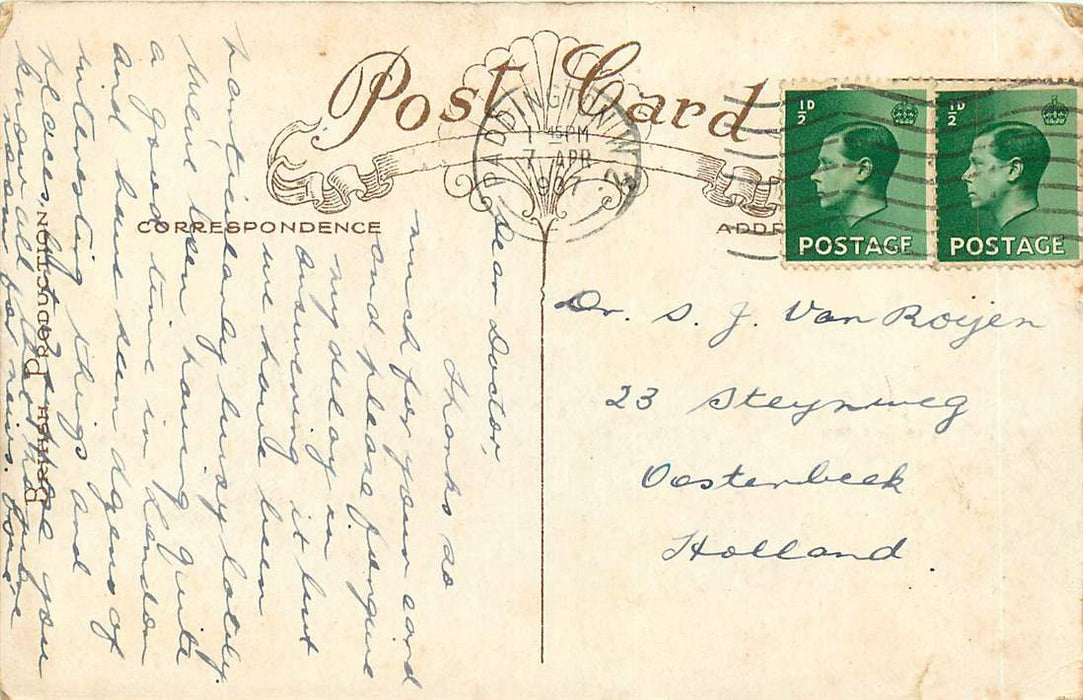 Post Card
PADDINGTON W.2
1 45 PM
7 APR
1937
½D
POSTAGE
½D
POSTAGE
CORRESPONDENCE
ADDR
BRITISH PRODUCTION
Dear Doctor,
Thanks so
much for your card
and please forgive
my delay in
answering it but
we have been
particularly busy lately.
We've been having quite
a good time in London
and have seen dozens of
interesting things and
places, but I hope you
know all that maybe
Dr. S. J. Van Roijen
23 Steynweg
Oosterbeek
Holland.